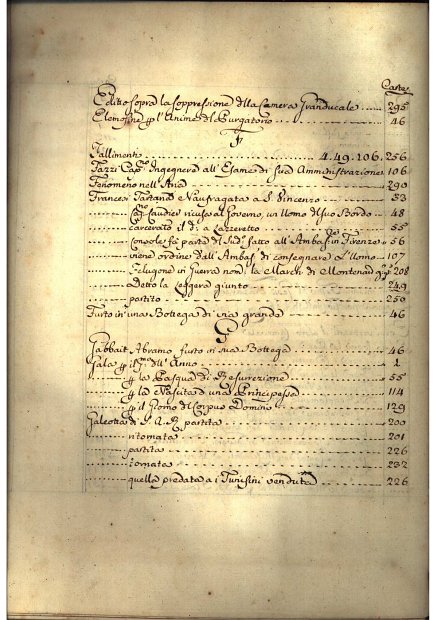 Carte
Editto sopra la soppressione dlla Camera Granducale 295
Elemosine p l'Anime del Purgatorio 46
F
Fallimenti 4. 49. 106. 256
Fazzi Capno Ingegnere all'Esame di sue Amministrazione 106
Fenomeno nell'Aria 290
Francese Tartana Naufragata a S. Vincenzo 53
Capn. Caudier ricusa al Governo, un Uomo del suo Bordo 48
carcerato il do. a Lazzeretto 55
Console fà parte del Sud. fatto all'Ambas. in Firenze 56
viene ordine dall'Ambas. di consegnare l'Uomo 107
Felugone in Guerra con la March. di Montenad 208
Detto la Leggera giunto 249
partito 250
Furto in una Bottega di via grande 46
G
Gabbai Abramo furto in sua Bottega 46
Gala p il po. dell'Anno 1
p la Pasqua di Resurrezione 55
p la Nascita d'una Principessa 114
p il Giorno del Corpus Domini 129
Galeotta di S. A. R. partita 200
ritornata 201
partita 226
tornata 232
quella predata a i Tunisini venduta 226